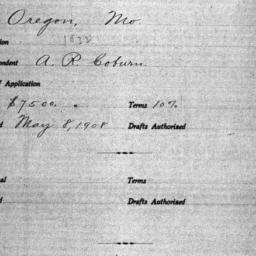 Oregon, Mo.
ion 1832
ondent A. R. Coburn
f Application
$7500. Terms 10%
d May 8, 1908 Drafts Authorized
al Terms
d Drafts Authorized